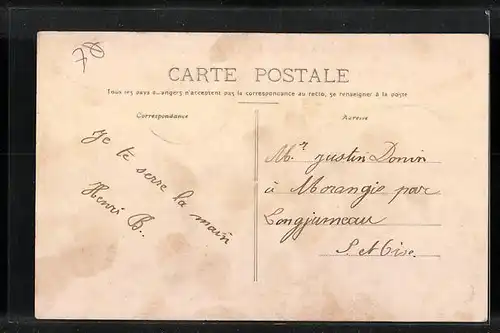 78
CARTE POSTALE
Tous les pays étrangers n'acceptent pas la correspondance au recto, se renseigner à la poste
Correspondance
Adresse
Je te serre la main
Henri B.
Mr Justin Donin
à Morangis par
Longjumeau
S. et Oise